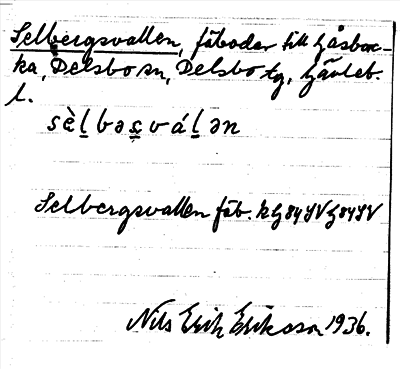 Selbergsvallen, fäbodar till Gåsbac-
ka, Delsbo sn, Delsbo tg, Gävleb.
l.
sὲl̠bəs̠vál̠ən
Selbergsvallen fäb. k G84SV G84SV
Nils Erik Eriksson 1936.